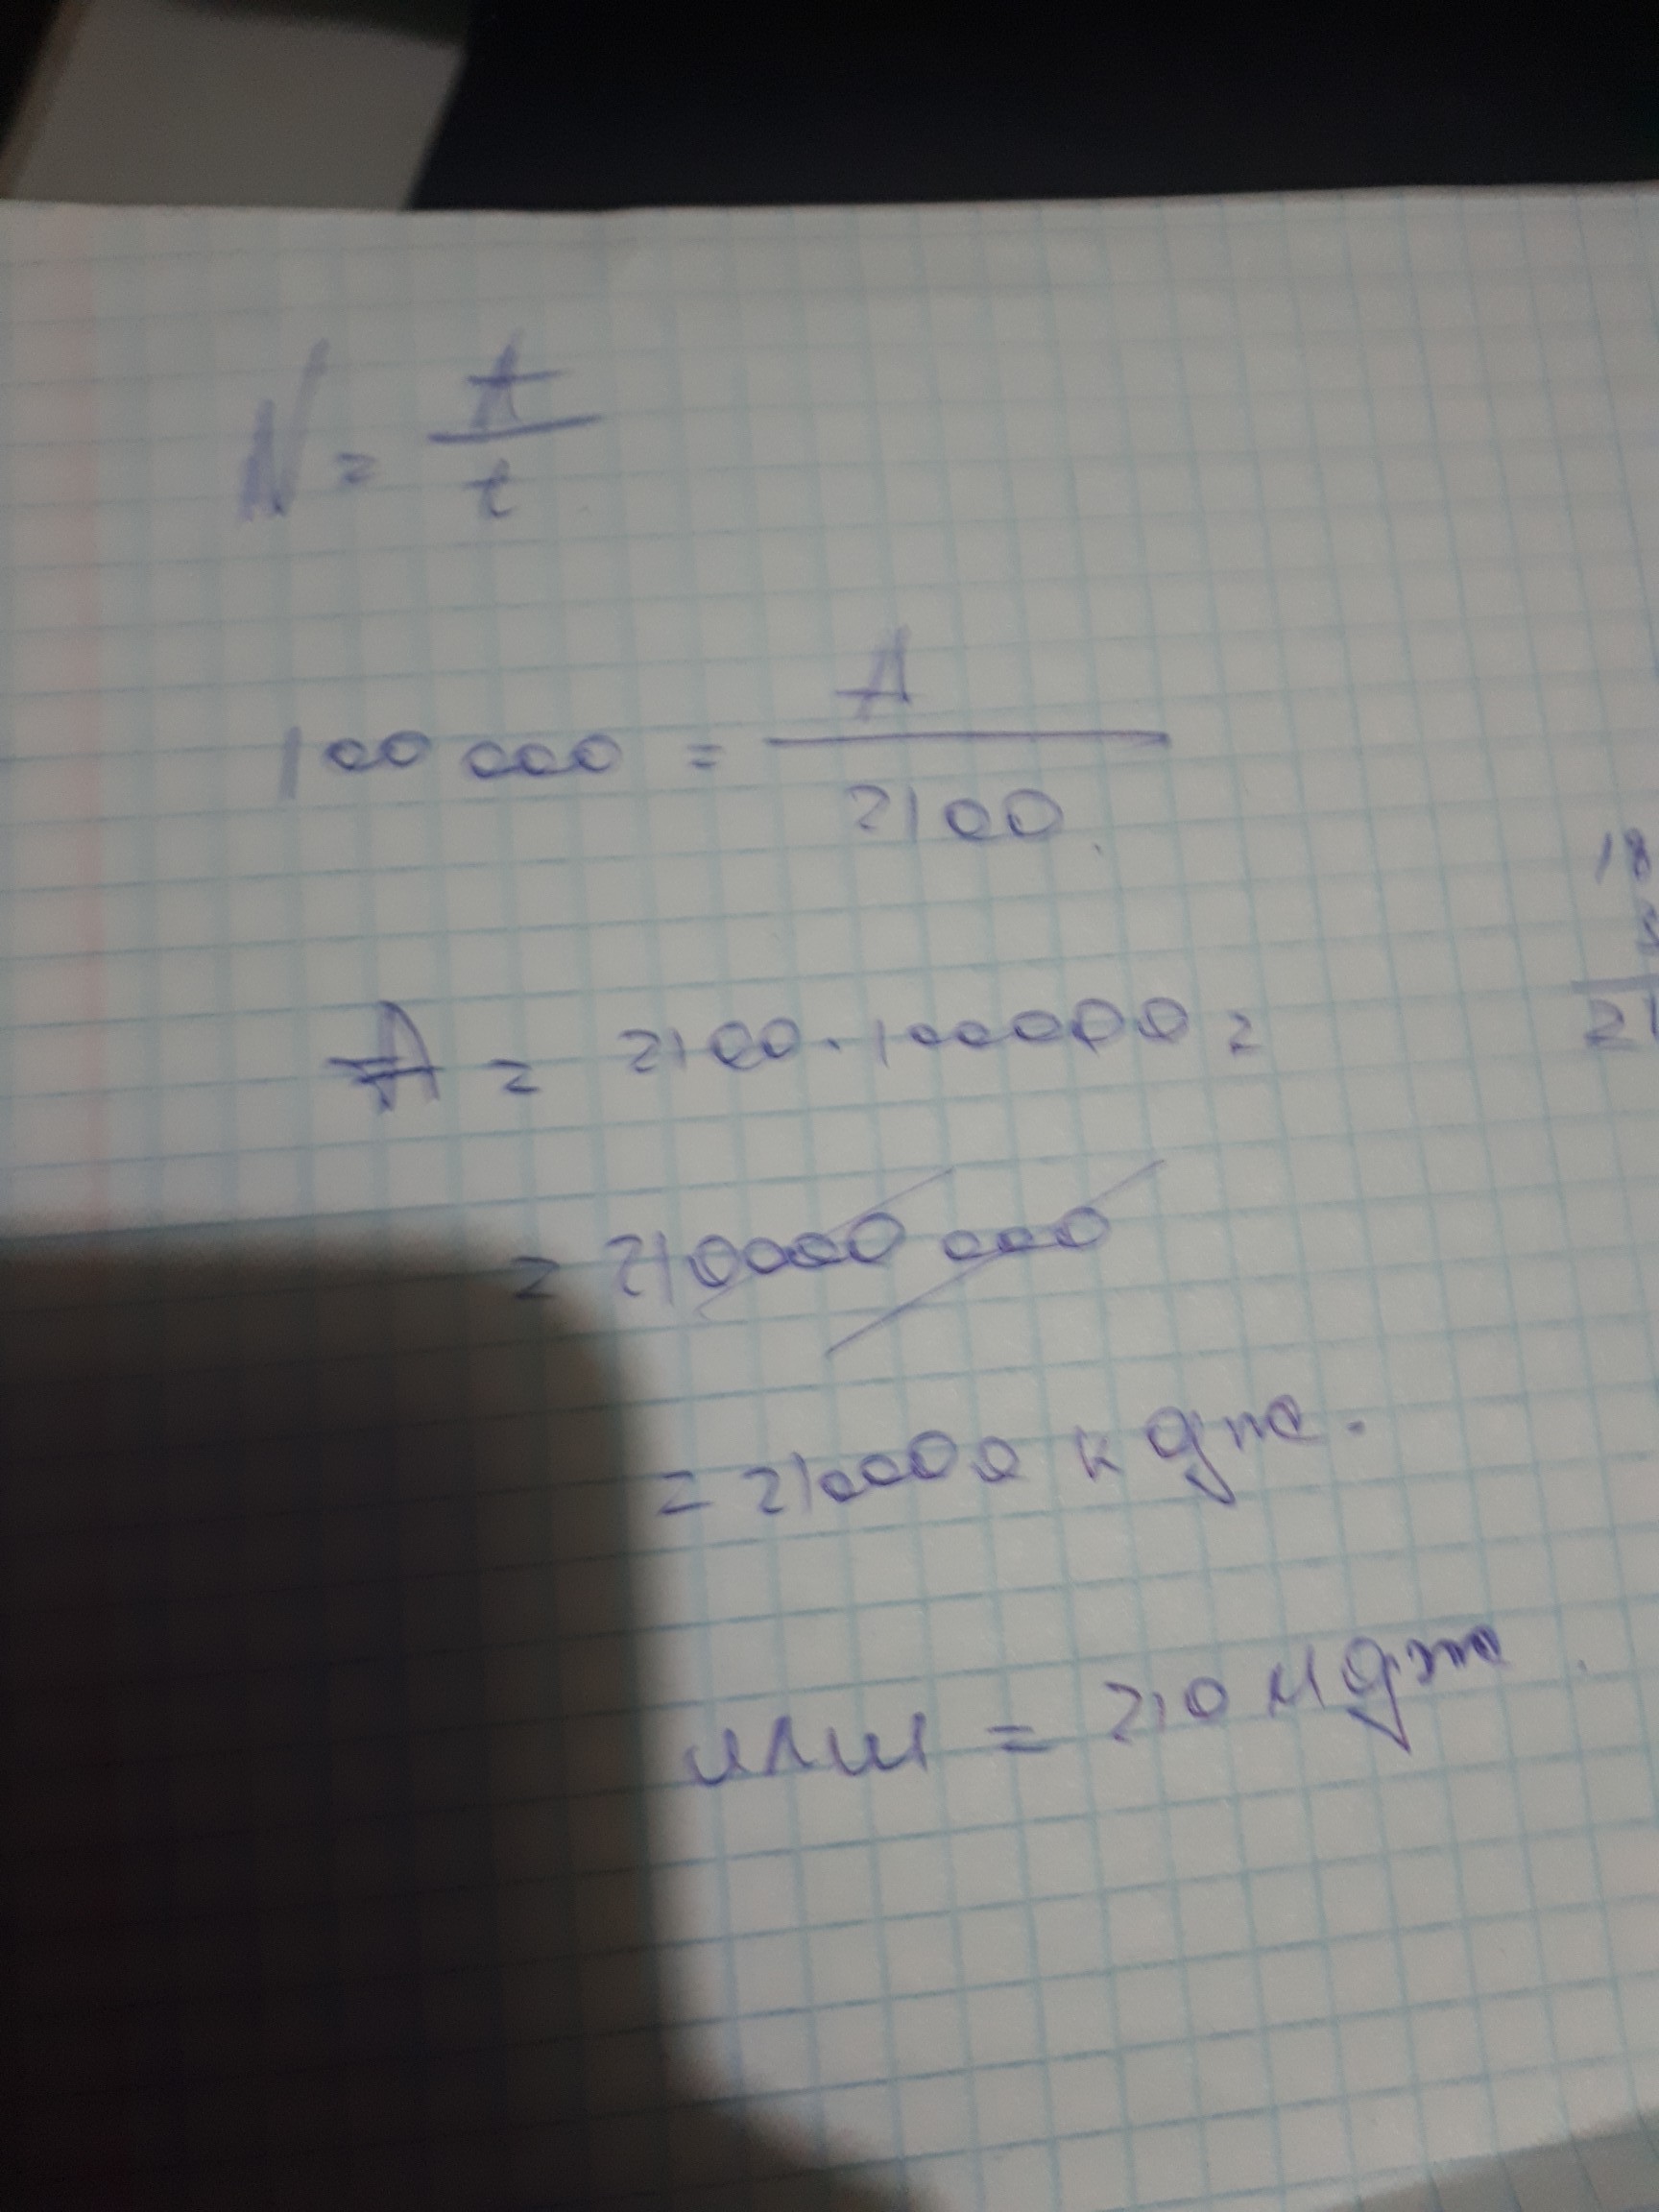 N = A/t
100 000 = A/2100
18
A = 2100 · 100000 =
21
= 210000 000
= 210000 к дж.
или = 210 М дж